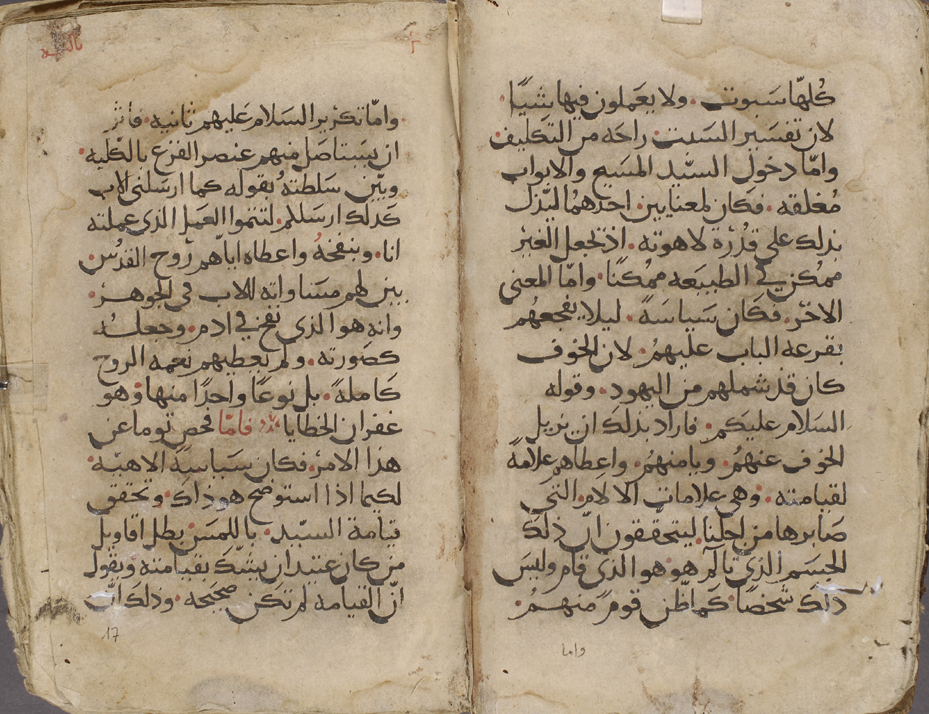 كلها سبوت. ولا يعملون فيها شيًا
لان تفسير السبت راحه من التكليف.
واما دخول السيد المسيح والابواب
مغلقه. فكان لمعنايين احدهما ليدل
بذلك على قدرة لاهوته. اذ تجعل الغير
ممكن في الطبيعه ممكنًا. واما المعنى
الاخر. فكان سياسةً. ليلا يفجعهم
بقرعه الباب عليهم. لان الخوف
كان قد شملهم من اليهود. وقوله
السلام عليكم. فاراد بذلك ان يزيل
الخوف عنهم. ويامنهم. واعطاهم علامةً
لقيامته. وهي علامات الالام التي
صابرها من اجلنا. ليتحققون ان ذلك
الجسم الذي تالم هو هو الذي قام وليس
ذلك شخصًا. كما ظن قوم منهم.
واما
واما تكرير السلام عليهم ثانيه. فاثر
ان يستاصل منهم عنصر الفزع بالكليه.
وبين سلطته بقوله كما ارسلني الاب
كذلك ارسلكم. لتتموا العمل الذي عملته
انا. وبنفخه واعطاه اياهم روح القدس.
بين لهم مساواته للاب في الجوهر.
وانه هو الذي نفخ في ادم. وجعله
كصورته. ولم يعطيهم نعمه الروح
كاملةً. بل نوعًا واحدًا منها. وهو
غفران الخطايا فاما فحص توما عن
هذا الامر. فكان بسياسة الاهيه.
لكيما اذا استوضح هو ذاك. وتحقق
قيامة السيد. باللمس. بطل اقاويل
من كان عتيد ان يشك بقيامته ويقول
ان القيامه لم تكن صحيحه. وذلك ان
17